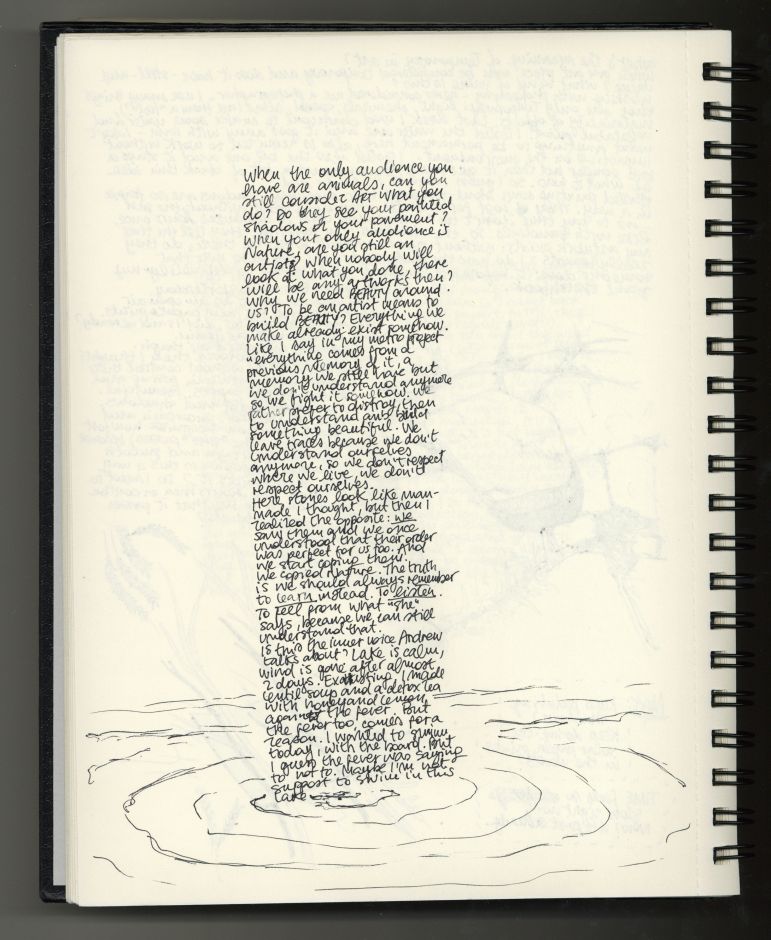 When the only audience you
have are animals, can you
still consider ART what you
do? Do they see your painted
shadows of your pavement?
When your only audience is
Nature, are you still an
artist? When nobody will
look at what you done, there
will be any artworks then?
Why we need BEAUTY around
us? To be an artist means to
build BEAUTY? Everything we
make already exist somehow.
Like I say in my metro project
"everything comes from a
previous memory of it, a
memory we still have but
we don't understand anymore
so we fight it somehow. We
rather prefer to distroy, then
to understand and build
something beautiful. We
leave traces because we don't
understand ourselves
anymore, so we don't respect
where we live, we don't
respect ourselves.
Here stones look like man-
made I thought, but then I
realized the opposite: we
saw them and we once
understood that their order
was perfect for us too. And
we start coping them.
We copied Nature. The truth
is we should always remember
to learn instead. To listen.
To feel from what "she"
says, because we can still
understand that.
Is this the inner voice Andrew
talks about? Lake is calm,
wind is gone after almost
2 days. Exausting. I made
lentil soup and a detox tea
with honey and lemon,
against the fever. But
the fever too, comes for a
reason. I wanted to swim
today, with the board. But
I guess the fever was saying
to not to. Maybe I'm not
support to swim in this
lake